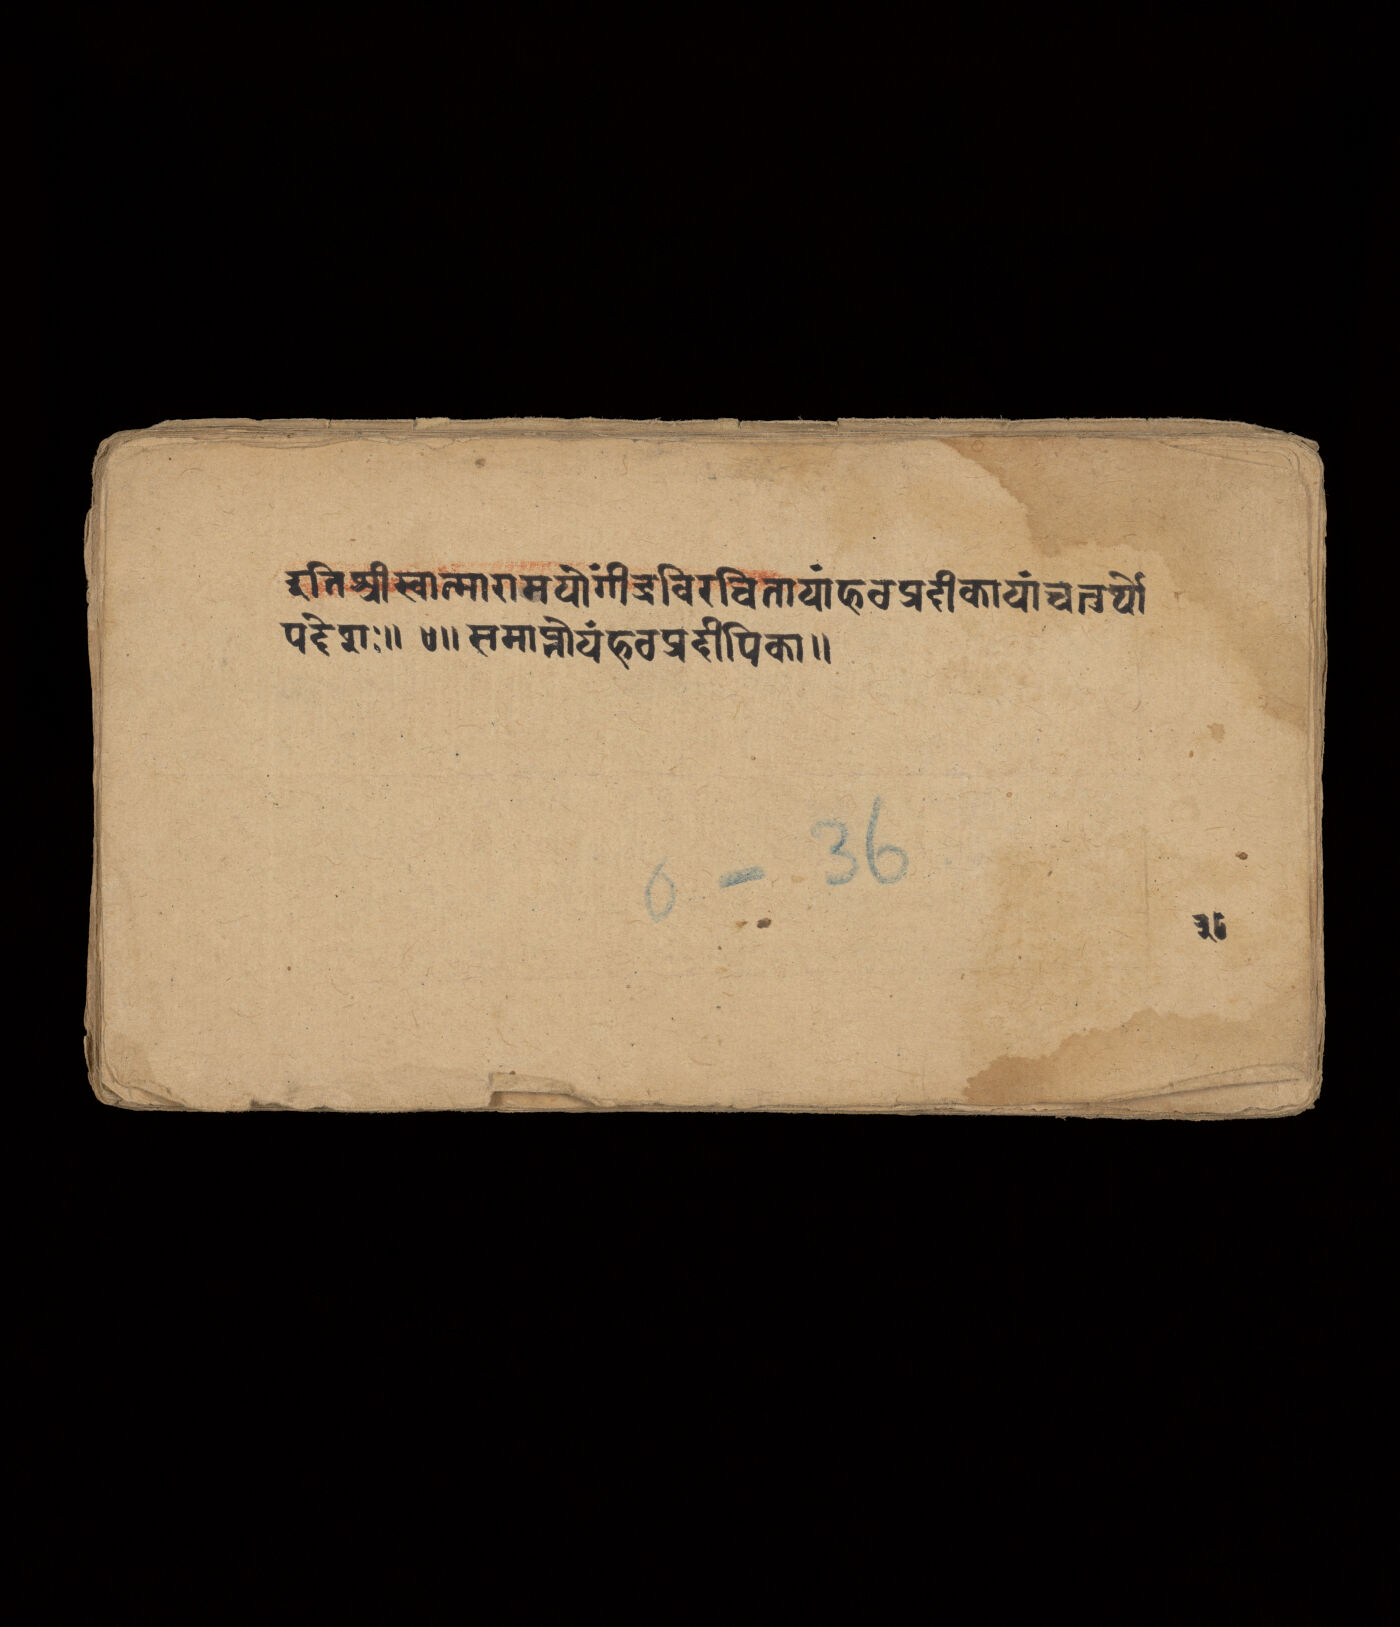 इतिश्रीस्वात्मारामयोगींद्रविरचितायांहठप्रदीकायांचतुर्थो
पदेशः॥ ४॥ समाप्तोयंहठप्रदीपिका॥
0 - 36
३६